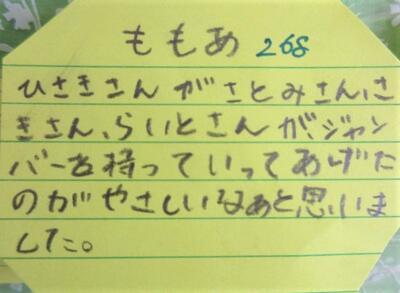 ももあ 268
ひさきさんがさとみさん、さ
きさん、らいとさんが、ジャン
バーを持っていってあげた
のがやさしいなぁと思いま
した。